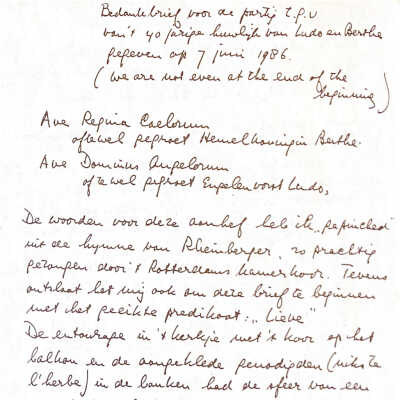 Bedankbrief voor de partij t.g.v
van't 40 jarige huwlijk van Ludo en Berthe
gegeven op 7 juni 1986.
(we are not even at the end of the
beginning)
Ave Regina Caelorum
oftewel gegroet Hemelkoningin Berthe.
Ave Dominus Angelorum
oftewel gegroet Engelenvorst Ludo,
De woorden voor deze aanhef heb ik „gepinched"
uit de hymne van Rheinberger, zo prachtig
gezongen door 't Rotterdams kamerkoor. Tevens
ontslaat het mij ook om deze brief te beginnen
met het geeikte predikaat: „Lieve"
De entourage in 't kerkje met 't koor op het
balkon en de aangeklede genodigden (niks à
l'herbe) in de banken had de sfeer van een